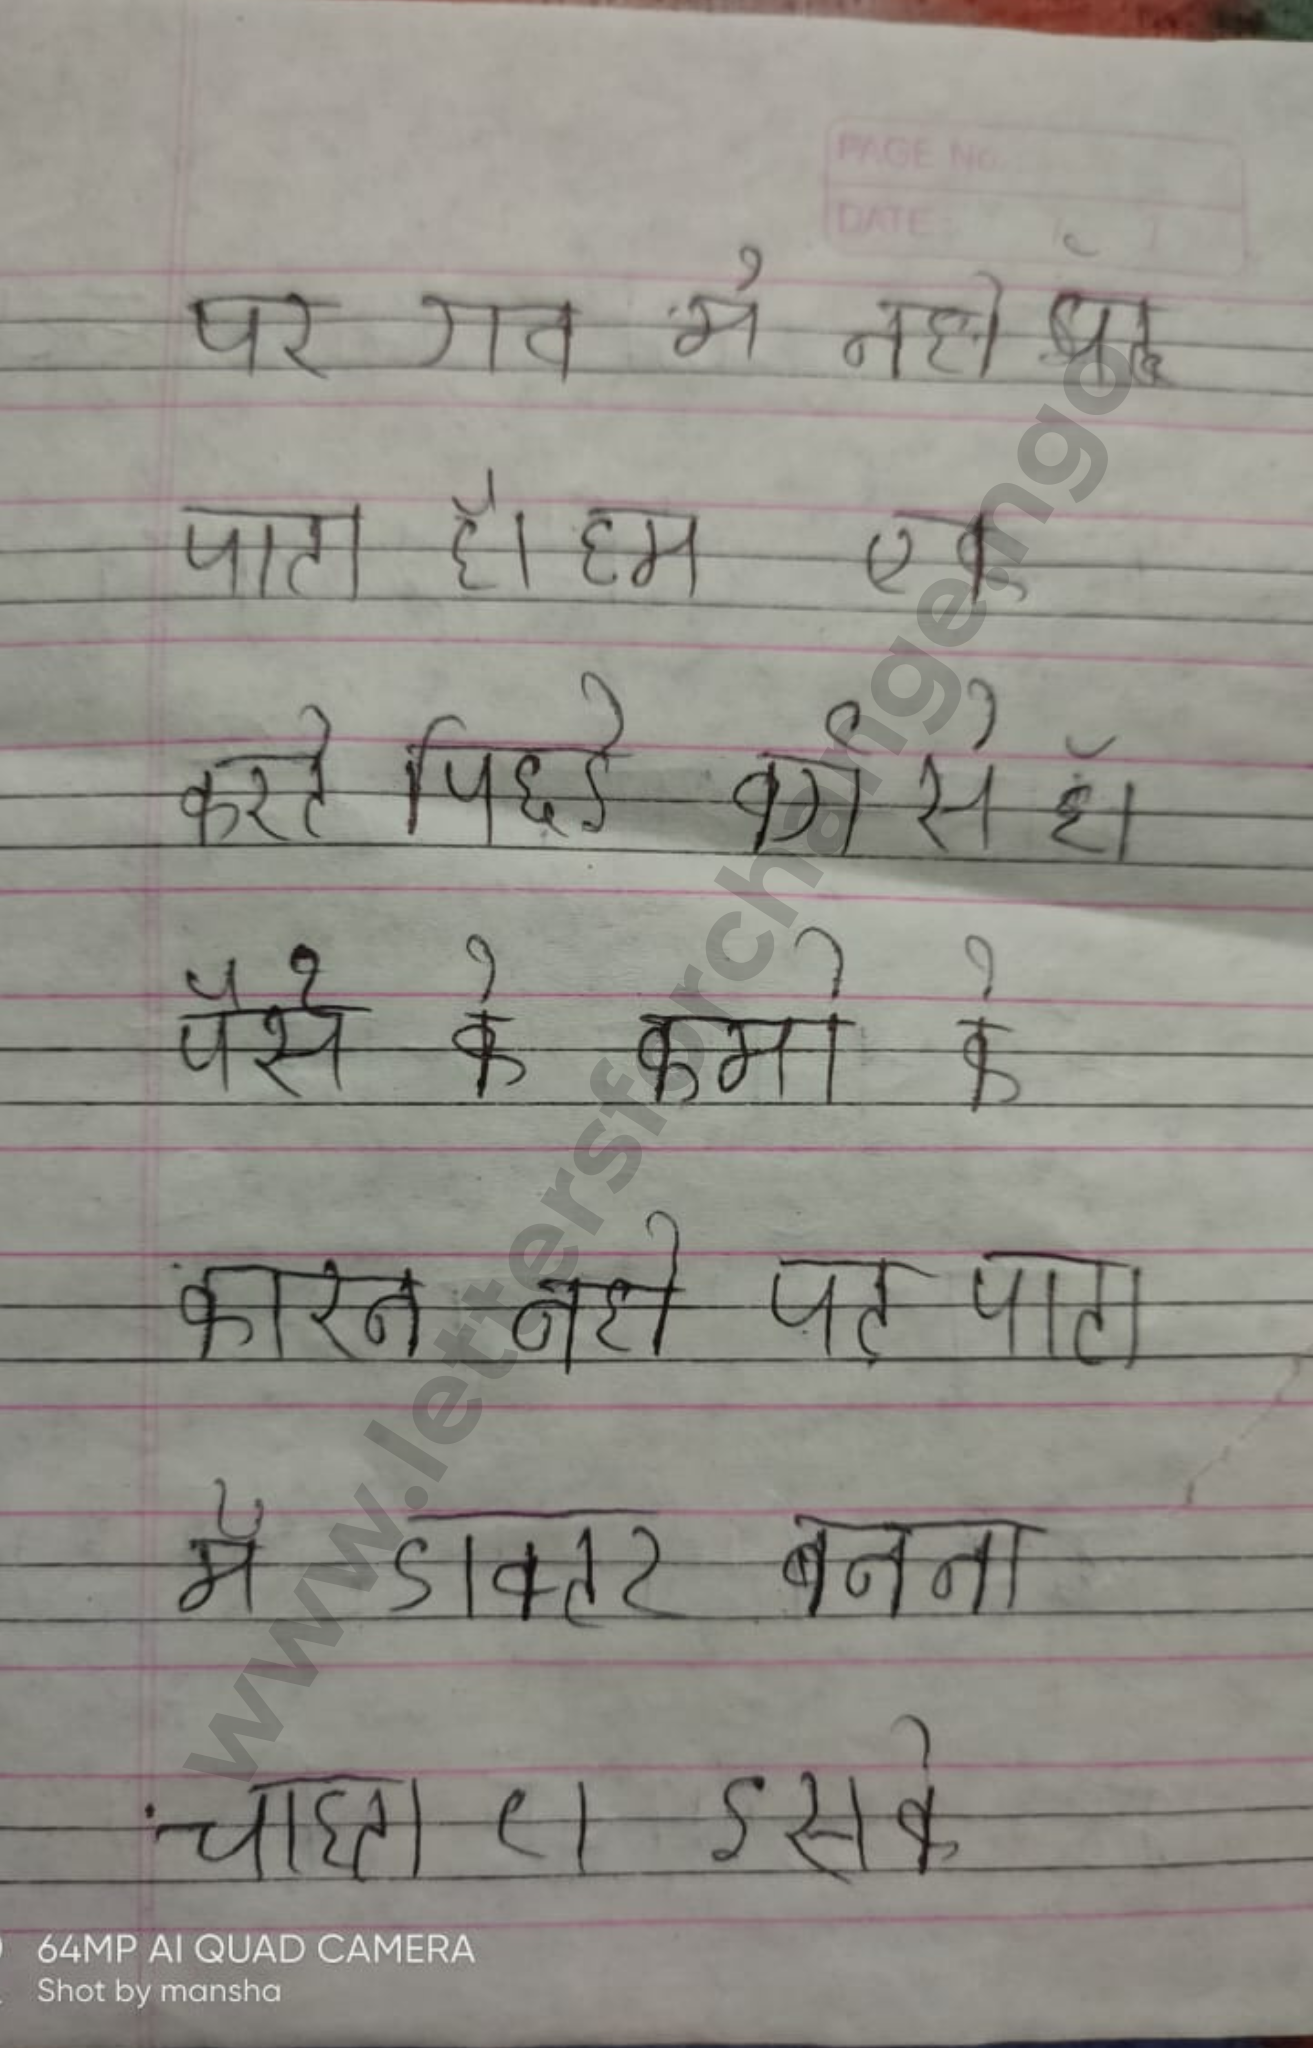 PAGE No.
DATE:
पर गाव मे नही पढ़
पाता है। हम एक
करते पिछड़े वर्ग से है।
पैसे के कमी के
कारन नही पढ पाता
मै डाक्टर बनना
चाहता
इसके
www.lettersforchange.ngo
64MP AI QUAD CAMERA
Shot by mansha